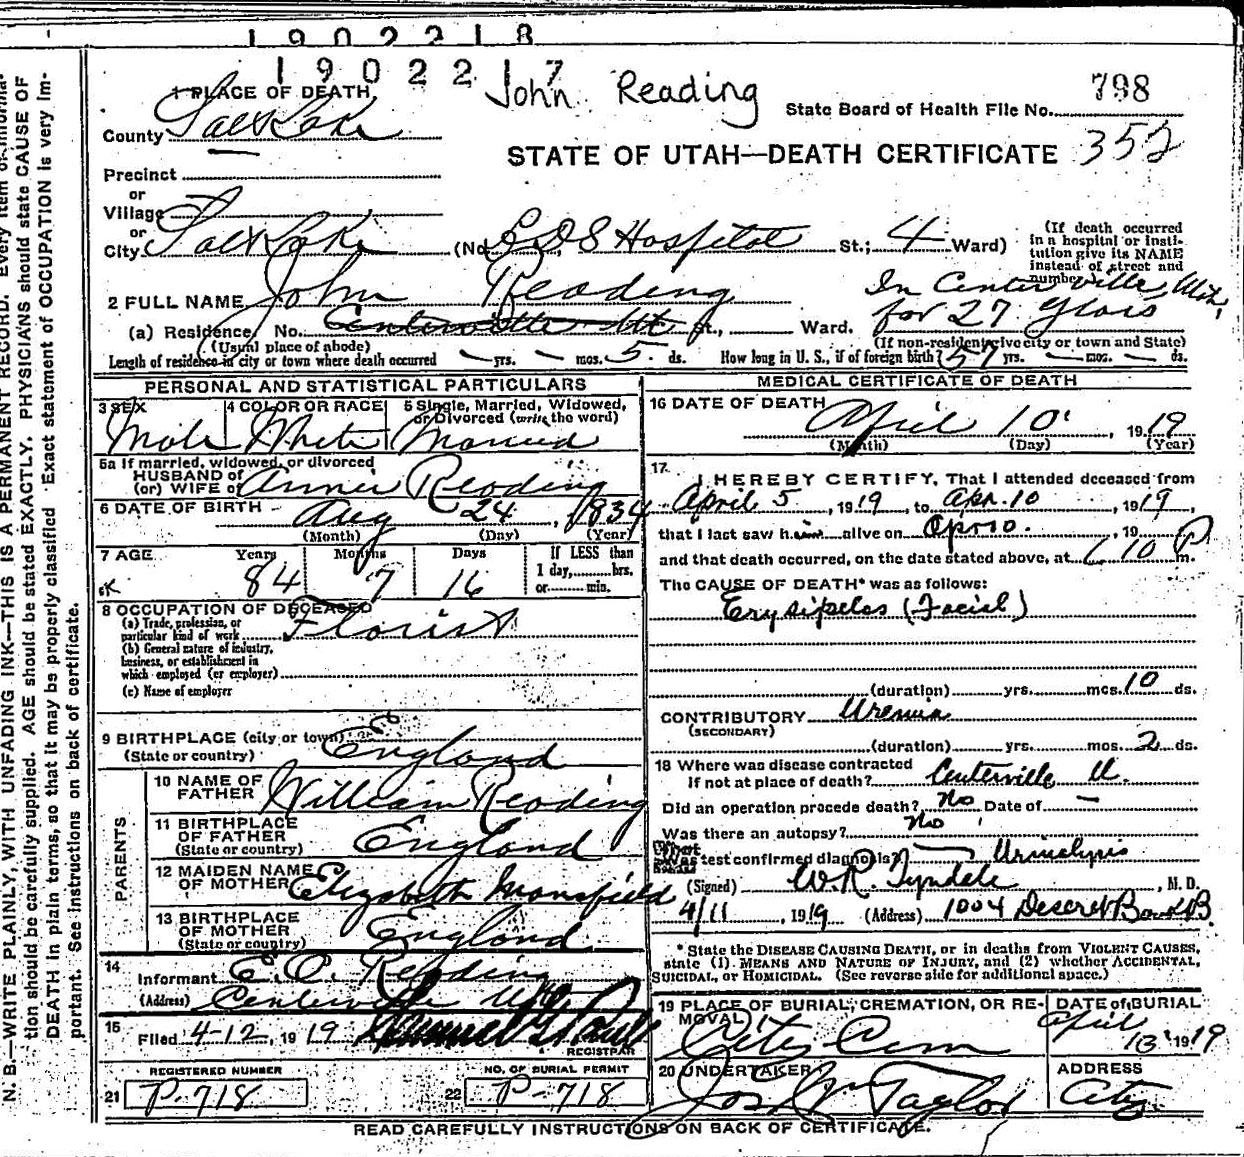 1902218
1902217
John Reading
798
1 PLACE OF DEATH
State Board of Health File No.
County Salt Lake
STATE OF UTAH—DEATH CERTIFICATE 352
Precinct
or
Village
or
City Salt Lake (No. L.D.S Hospital St.; 4 Ward)
(If death occurred
in a hospital or insti-
tution give its NAME
instead of street and
number.)
2 FULL NAME John Reading
In Centerville, Utah,
for 27 years
(a) Residence, No. Centerville Ut St., Ward.
(Usual place of abode)
(If non-resident give city or town and State)
Length of residence in city or town where death occurred — yrs. — mos. 5 ds. How long in U. S., if of foreign birth? 57 yrs. — mos. — ds.
PERSONAL AND STATISTICAL PARTICULARS
3 SEX
4 COLOR OR RACE
5 Single, Married, Widowed,
or Divorced (write the word)
Male White Married
5a If married, widowed, or divorced
HUSBAND of
(or) WIFE of Annie Reading
6 DATE OF BIRTH
Aug 24, 1834
(Month) (Day) (Year)
7 AGE Years Months Days
If LESS than
1 day, hrs.
or min.
84 7 16
8 OCCUPATION OF DECEASED
(a) Trade, profession, or
particular kind of work Florist
(b) General nature of industry,
business, or establishment in
which employed (or employer)
(c) Name of employer
9 BIRTHPLACE (city or town)
(State or country) England
PARENTS
10 NAME OF
FATHER William Reading
11 BIRTHPLACE
OF FATHER
(State or country) England
12 MAIDEN NAME
OF MOTHER Elizabeth Mansfield
13 BIRTHPLACE
OF MOTHER
(State or country) England
14
Informant E. O. Reading
(Address) Centerville Utah
15
Filed 4-12, 1919
REGISTRAR
REGISTERED NUMBER
21 P-718
NO. OF BURIAL PERMIT
22 P-718
MEDICAL CERTIFICATE OF DEATH
16 DATE OF DEATH
April 10, 1919
(Month) (Day) (Year)
17.
I HEREBY CERTIFY, That I attended deceased from
April 5, 1919, to Apr. 10, 1919,
that I last saw him alive on Apr 10. , 19
and that death occurred, on the date stated above, at 10 P m.
The CAUSE OF DEATH* was as follows:
Erysipelas (Facial)
(duration) yrs. mos. 10 ds.
CONTRIBUTORY Uremia
(SECONDARY)
(duration) yrs. mos. 2 ds.
18 Where was disease contracted
if not at place of death? Centerville U.
Did an operation precede death? No Date of —
Was there an autopsy? No
What test confirmed diagnosis? Urinalysis
(Signed) W. R. Tyndale, M. D.
4/11, 1919 (Address) 1004 Deseret Bank B
* State the DISEASE CAUSING DEATH, or in deaths from VIOLENT CAUSES,
state (1) MEANS AND NATURE OF INJURY, and (2) whether ACCIDENTAL,
SUICIDAL, OR HOMICIDAL. (See reverse side for additional space.)
19 PLACE OF BURIAL, CREMATION, OR RE-
MOVAL
City Cem
DATE of BURIAL
April
13 1919
20 UNDERTAKER
Jos Wm Taylor
ADDRESS
City
READ CAREFULLY INSTRUCTIONS ON BACK OF CERTIFICATE.
N. B.—WRITE PLAINLY, WITH UNFADING INK—THIS IS A PERMANENT RECORD. Every item of informa-
tion should be carefully supplied. AGE should be stated EXACTLY. PHYSICIANS should state CAUSE OF
DEATH in plain terms, so that it may be properly classified. Exact statement of OCCUPATION is very im-
portant. See instructions on back of certificate.